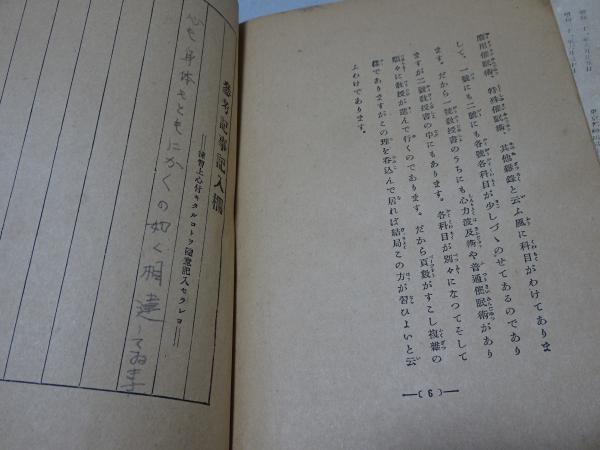 應用催眠術、特殊催眠術、其他雜錄と云ふ風に科目がわけてありま
して、一號にも二號にも各號各科目が少しづゝのせてあるのであり
ます。だから一號教授書のうちにも心力波及術や普通催眠術があり
ますが二號教授書の中にもあります。各科目が別々になつてそして
順々に教授が進んで行くのであります。だから頁數がすこし複雜の
樣でありますがこの理を呑込んで居れば結局この方が習ひよいと云
ふわけであります。
―( 9 )―
參考記事記入欄
―練習上心付キタルコトヲ隨意記入セラレヨ―
心も身体もともにかくの如く相違してゐます